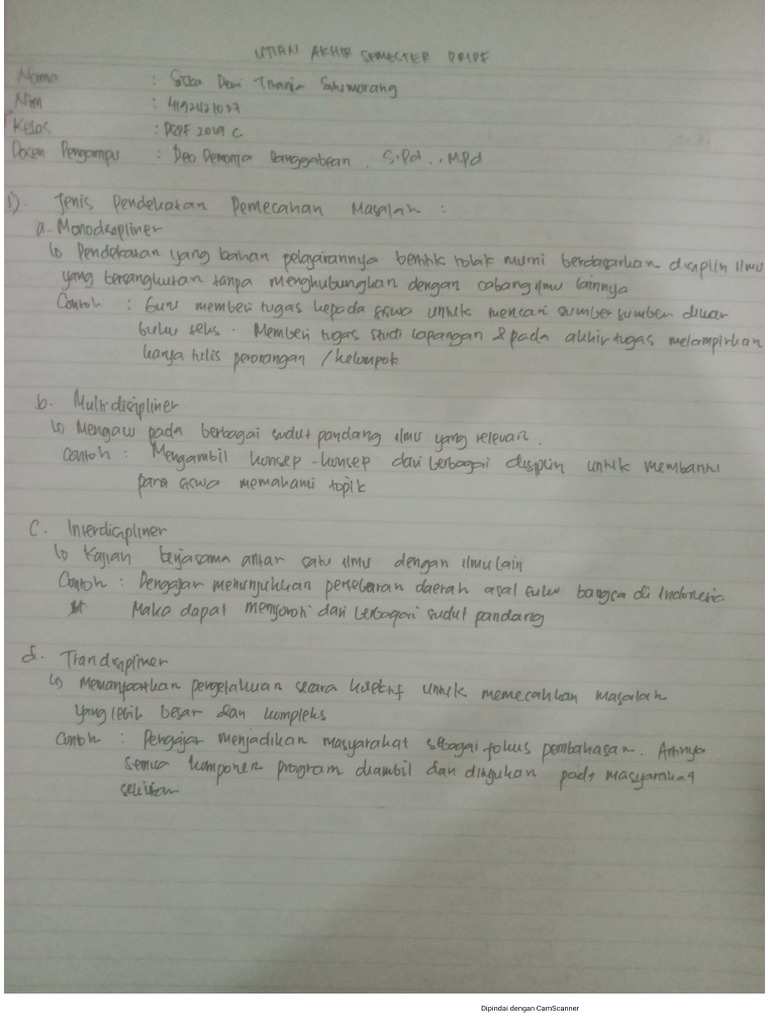 UJIAN AKHIR SEMESTER
Nama : Dewi Situmorang
Nim :
Kelas : 2019 C
Dosen Pengampu : Deo Demonta Panggabean, S.Pd., M.Pd
1). Jenis Pendekatan Pemecahan Masalah :
a. Monodisipliner
Pendekatan yang bahan pelajarannya bertitik tolak murni berdasarkan disiplin ilmu
yang bersangkutan tanpa menghubungkan dengan cabang ilmu lainnya
Contoh : Guru memberi tugas kepada siswa untuk mencari sumber sumber diluar
buku teks. Memberi tugas studi lapangan & pada akhir tugas melampirkan
karya tulis perorangan / kelompok
b. Multidisipliner
Mengacu pada berbagai sudut pandang ilmu yang relevan.
Contoh : Mengambil konsep-konsep dari berbagai disiplin untuk membantu
para siswa memahami topik
C. Interdisipliner
Kajian kerjasama antar satu ilmu dengan ilmu lain
Contoh : Pengajar menunjukkan persebaran daerah asal suku bangsa di Indonesia
Maka dapat menyoroti dari berbagai sudut pandang
d. Trandisipliner
Memanfaatkan pengetahuan secara untuk memecahkan masalah
yang lebih besar dan kompleks
Contoh : Pengajar menjadikan masyarakat sebagai fokus pembahasan. Artinya
semua komponen program diambil dan diajukan pada masyarakat
sekitar
Dipindai dengan CamScanner